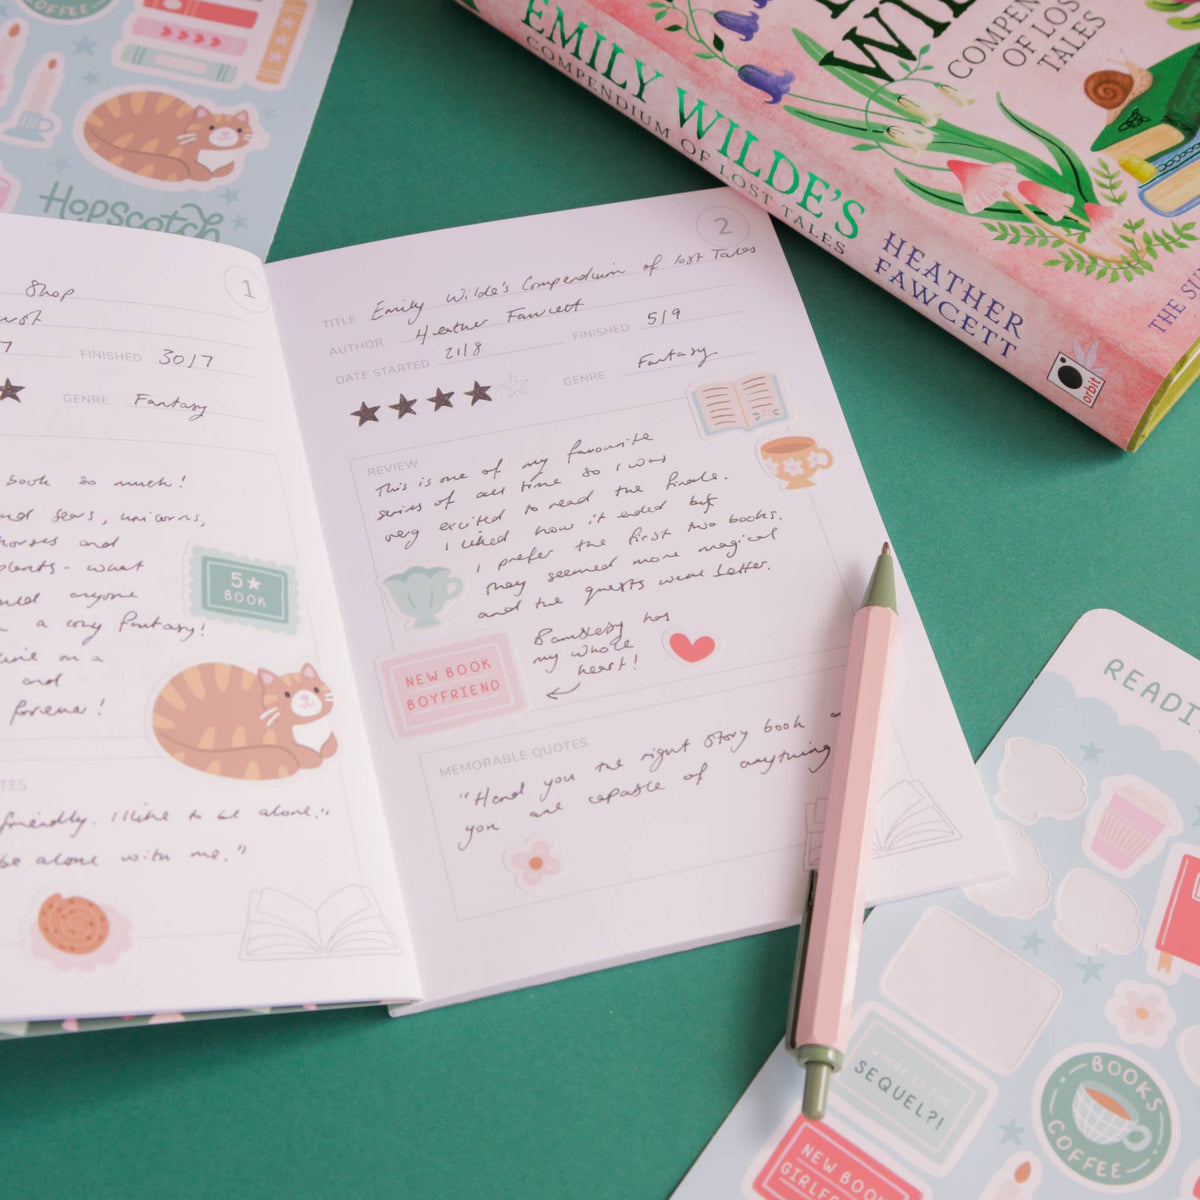 COFFEE
Hopscotch
EMILY WILDE'S
COMPENDIUM OF LOST TALES
HEATHER
FAWCETT
orbit
WIL
COMPEN
OF LOS
TALES
THE SU
1
Shop
FINISHED 30/7
GENRE Fantasy
book so much!
and fears, unicorns,
horses and
plants - what
anyone
a cosy fantasy!
on a
and
forever!
5★
BOOK
TES
friendly. I like to be alone."
be alone with me."
2
TITLE Emily Wilde's Compendium of lost Tales
AUTHOR Heather Fawcett
DATE STARTED 21/8 FINISHED 5/9
GENRE Fantasy
REVIEW
This is one of my favourite
series of all time so I was
very excited to read the finale.
I liked how it ended but
I prefer the first two books.
They seemed more magical
and the quests were better.
NEW BOOK
BOYFRIEND
Bambleby has
my whole
heart!
MEMORABLE QUOTES
"Hand you the right story book
you are capable of anything
READI
WHERE IS THE
SEQUEL?!
BOOKS
COFFEE
NEW BOO
GIRLF